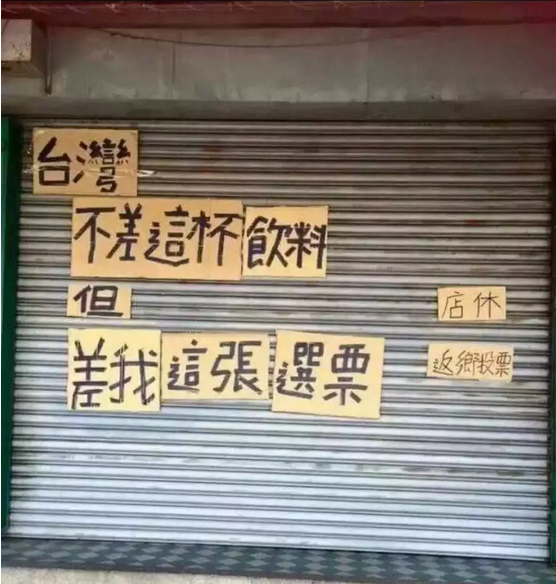 台灣
不差這杯飲料
但
差我這張選票
店休
返鄉投票